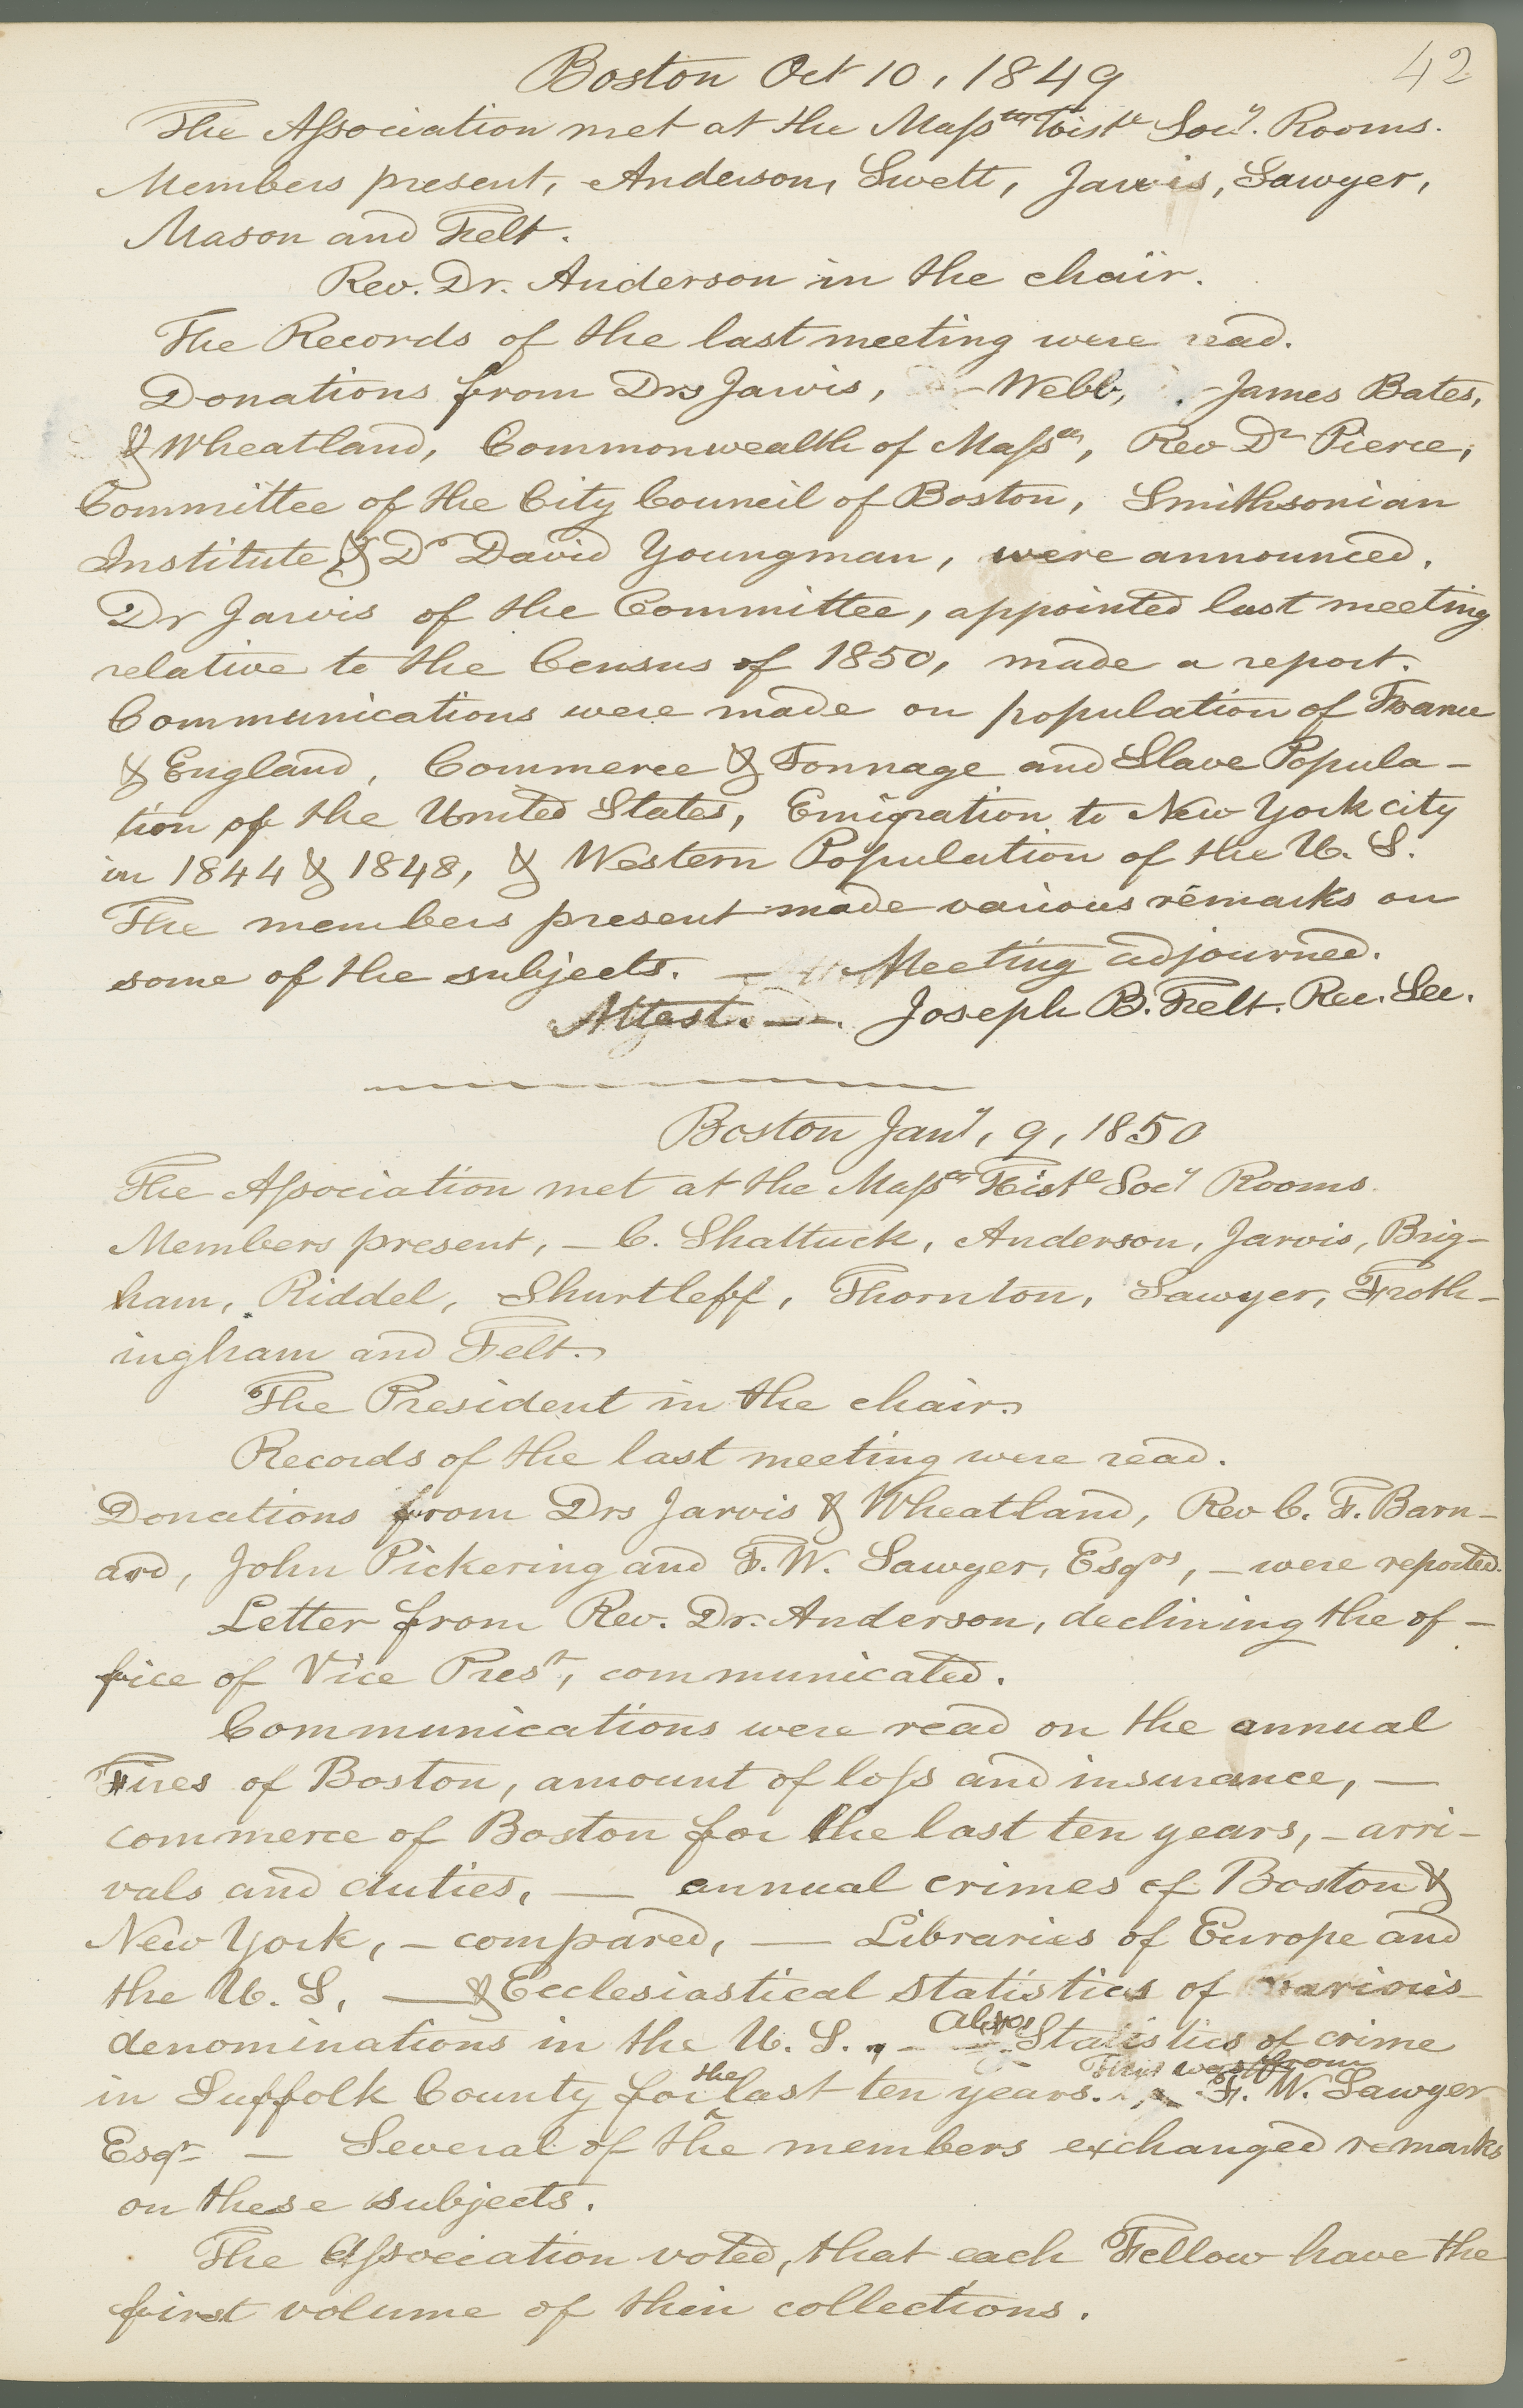 42
Boston Oct 10, 1849
The Association met at the Massᵗᵗˢ Histˡ Socʸ. Rooms.
Members present, Anderson, Swett, Jarvis, Sawyer,
Mason and Felt.
Rev. Dr. Anderson in the chair.
The Records of the last meeting were read.
Donations from Drs Jarvis, – Webb, – James Bates,
& Wheatland, Commonwealth of Massᵗᵗˢ, Rev Dʳ Pierce,
Committee of the City Council of Boston, Smithsonian
Institute & Dʳ David Youngman, were announced.
Dr Jarvis of the Committee, appointed last meeting
relative to the Census of 1850, made a report.
Communications were made on population of France
& England, Commerce & Tonnage and Slave Popula-
tion of the United States, Emigration to New York city
in 1844 & 1848, & Western Population of the U. S.
The members present made various remarks on
some of the subjects. — Meeting adjourned.
Attest. —. Joseph B. Felt. Rec. Sec.
Boston Janʸ, 9, 1850
The Association met at the Massᵗᵗˢ Histˡ Socʸ Rooms.
Members present, – C. Shattuck, Anderson, Jarvis, Brig-
ham, Riddel, Shurtleff, Thornton, Sawyer, Froth-
ingham and Felt.
The President in the chair.
Records of the last meeting were read.
Donations from Drs Jarvis & Wheatland, Rev C. F. Barn-
ard, John Pickering and F. W. Sawyer, Esqʳˢ, – were reported.
Letter from Rev. Dr. Anderson, declining the of-
fice of Vice Presᵗ, communicated.
Communications were read on the annual
Fires of Boston, amount of loss and insurance, —
commerce of Boston for the last ten years, – arri-
vals and duties, — annual crimes of Boston &
New York, – compared, — Libraries of Europe and
the U. S, — & Ecclesiastical statistics of various
denominations in the U. S., – Also Statistics of crime
in Suffolk County for the last ten years. This was from F. W. Sawyer
Esqʳ — Several of the members exchanged remarks
on these subjects.
The Association voted, that each Fellow have the
first volume of their collections.